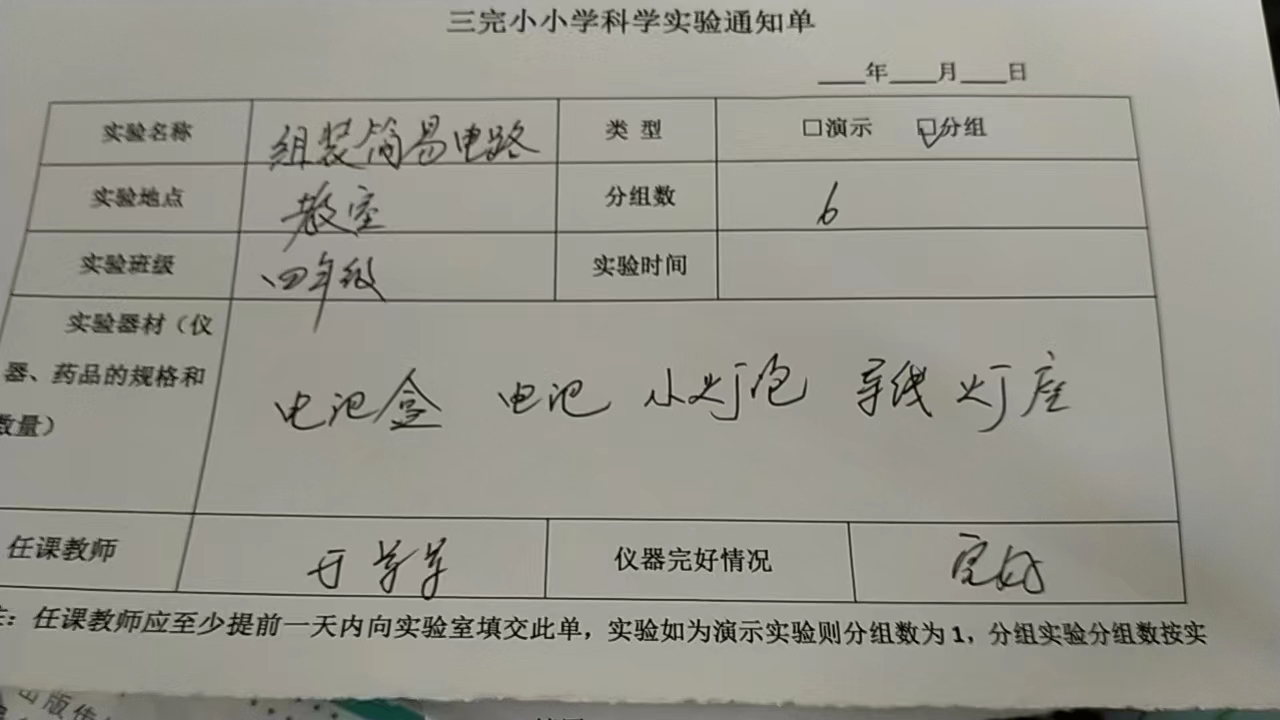 三完小小学科学实验通知单
____年____月____日
实验名称 组装简易电路 类 型 □演示 ☑分组
实验地点 教室 分组数 6
实验班级 四年级 实验时间
实验器材（仪
器、药品的规格和
数量）
电池盒 电池 小灯泡 导线 灯座
任课教师 仪器完好情况 完好
：任课教师应至少提前一天内向实验室填交此单，实验如为演示实验则分组数为1，分组实验分组数按实
出版传